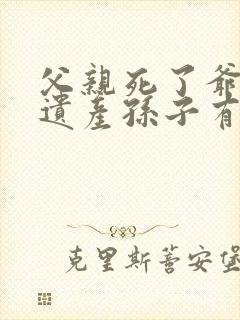 父親死了爺
遺産孫子有
克里斯蒂安堡